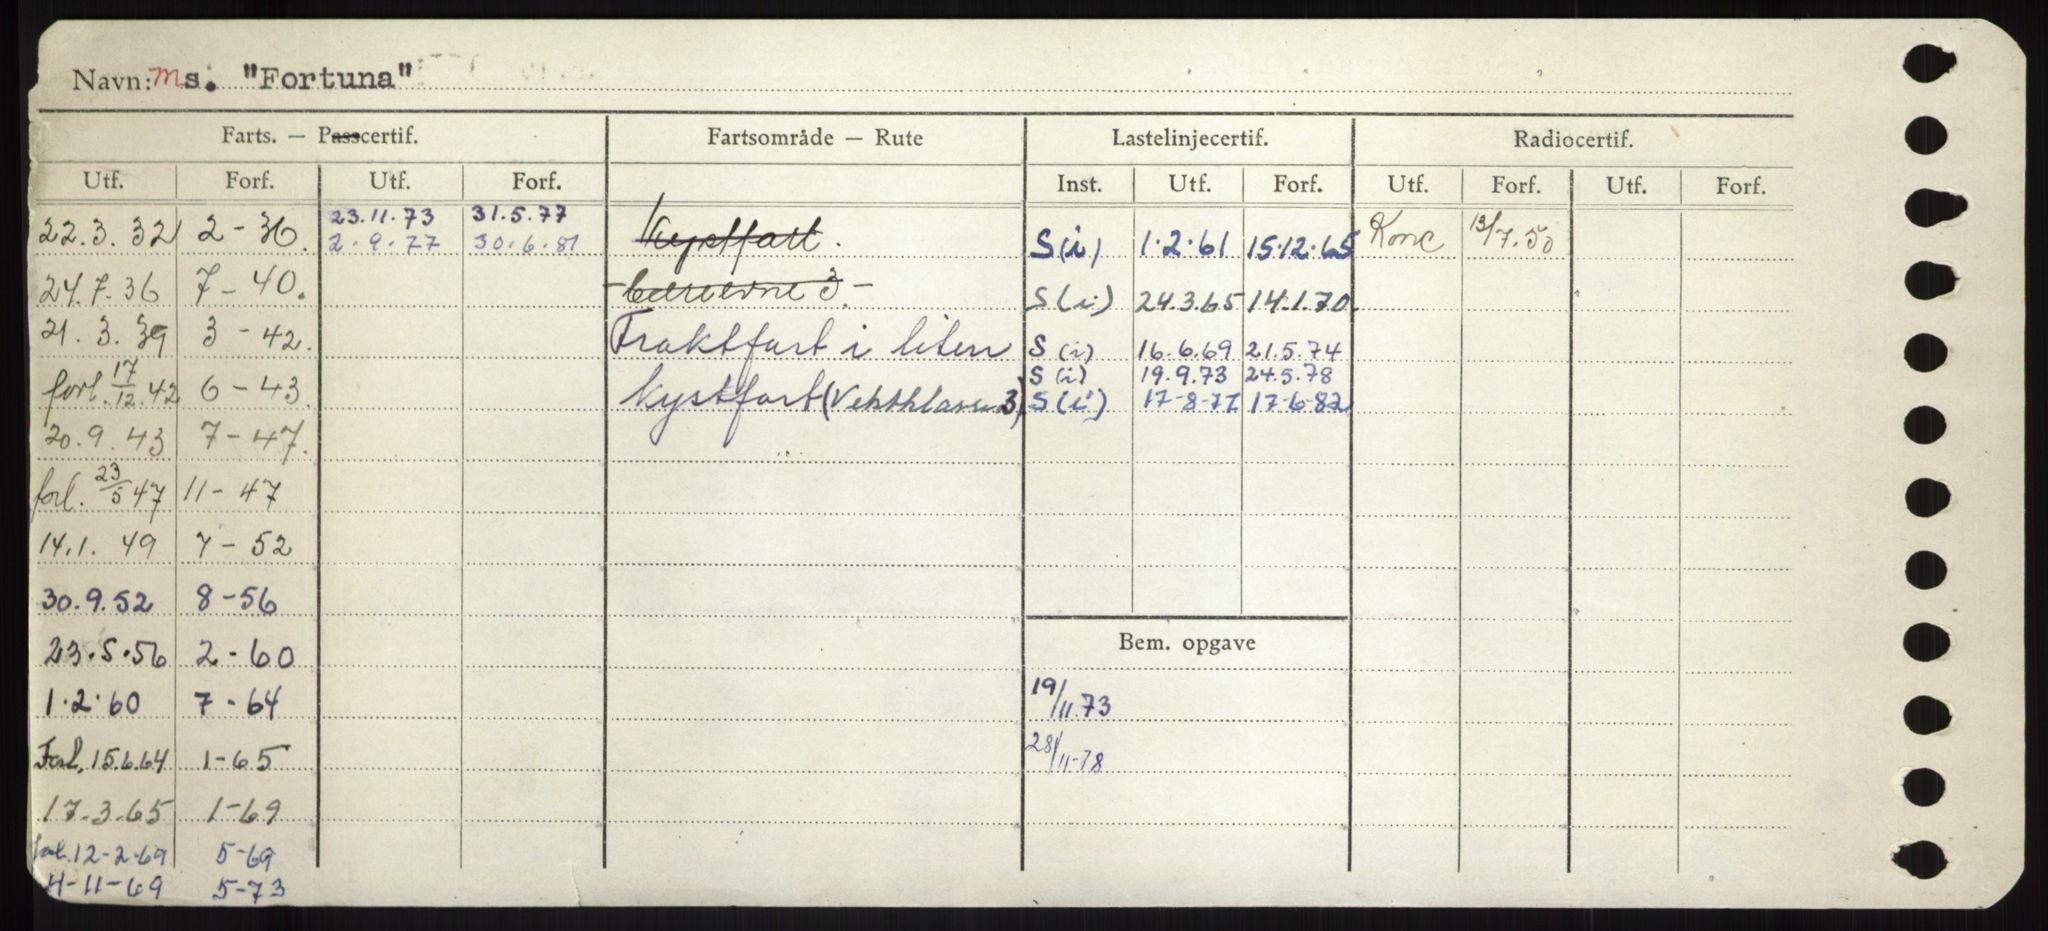 Navn: Ms. "Fortuna"
Farts. — Passcertif. Fartsområde — Rute Lastelinjecertif. Radiocertif.
Utf. Forf. Utf. Forf. Inst. Utf. Forf. Utf. Forf. Utf. Forf.
22.3.32 2-36. 23.11.73 31.5.77 Kystfart. S(i) 1.2.61 15.12.65 Konc 13/7.50
2.9.77 30.6.81
24.7.36 7-40. -Bæreevne 3.- S(i) 24.3.65 14.1.70.
21.3.39 3-42. Fraktfart i liten S(i) 16.6.69 21.5.74
S(i) 19.9.73 24.5.78
forl. 17/12.42 6-43 kystfart (Vektklasse 3) S(i) 17-8-77 17-6-82
20.9.43 7-47.
forl. 23/5 47 11-47
14.1.49 7-52
30.9.52 8-56
23.5.56 2-60 Bem. opgave
1.2.60 7-64 19/11.73
Forl. 15.6.64 1-65 28/11-78
17.3.65 1-69
forl. 12-2-69 5-69
4-11-69 5-73